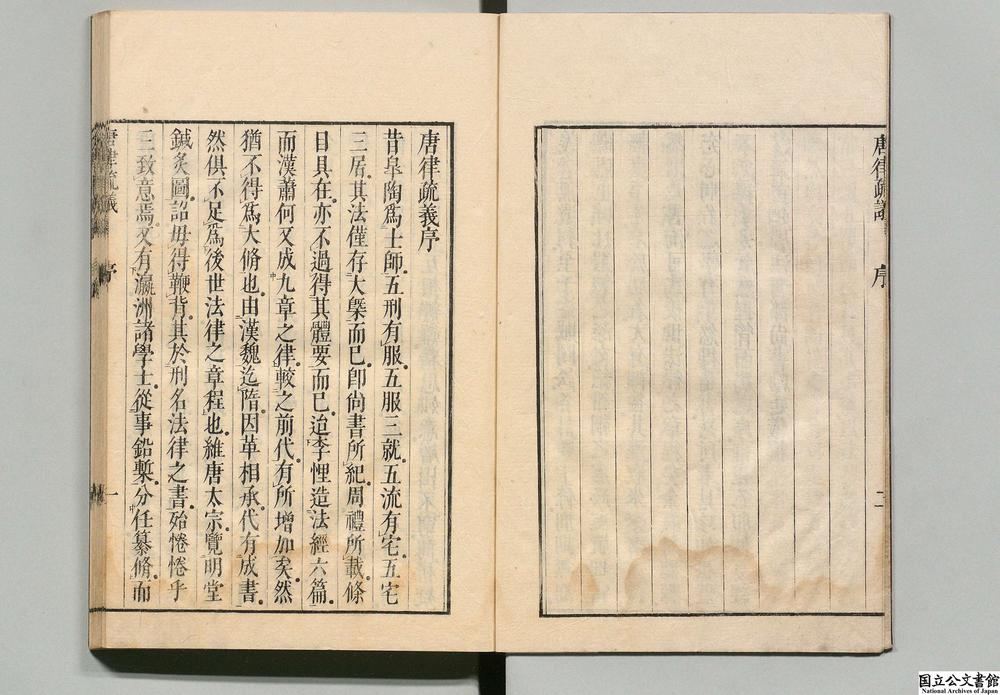 唐律疏義
序
二
唐律疏義序
昔皐陶爲士師五刑有服五服三就五流有宅五宅
三居其法僅存大槩而已卽尚書所紀周禮所載條
目具在亦不過得其體要而已迨李悝造法經六篇
而漢蕭何又成九章之律較之前代有所增加矣然
猶不得爲大脩也由漢魏迄隋因革相承代有成書
然俱不足爲後世法律之章程也維唐太宗覽明堂
鍼灸圖詔毋得鞭背其於刑名法律之書殆惓惓乎
三致意焉又有瀛洲諸學士從事鉛槧分任纂脩而
唐律疏義
序
一
国立公文書館
National Archives of Japan